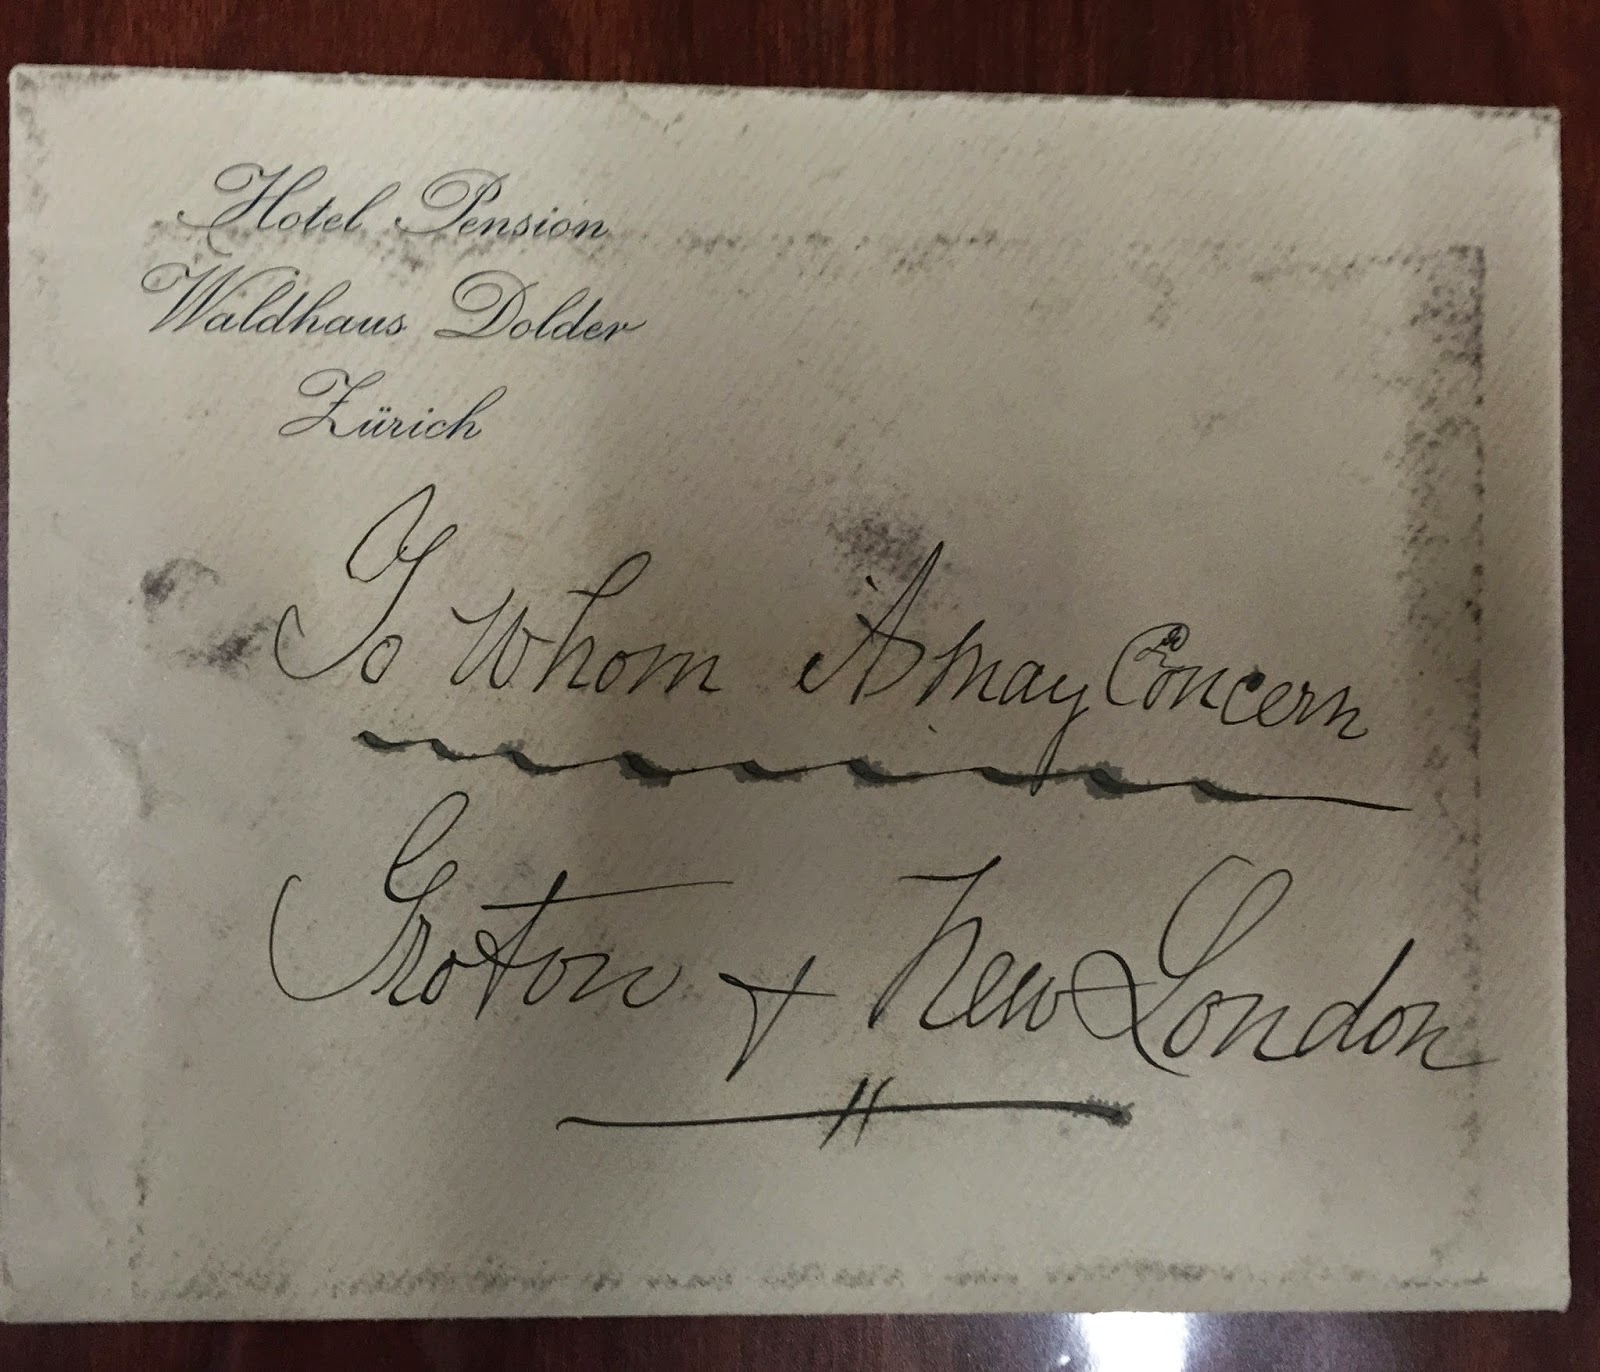 Hotel Pension
Waldhaus Dolder
Zürich
To Whom it may Concern
Groton & New London